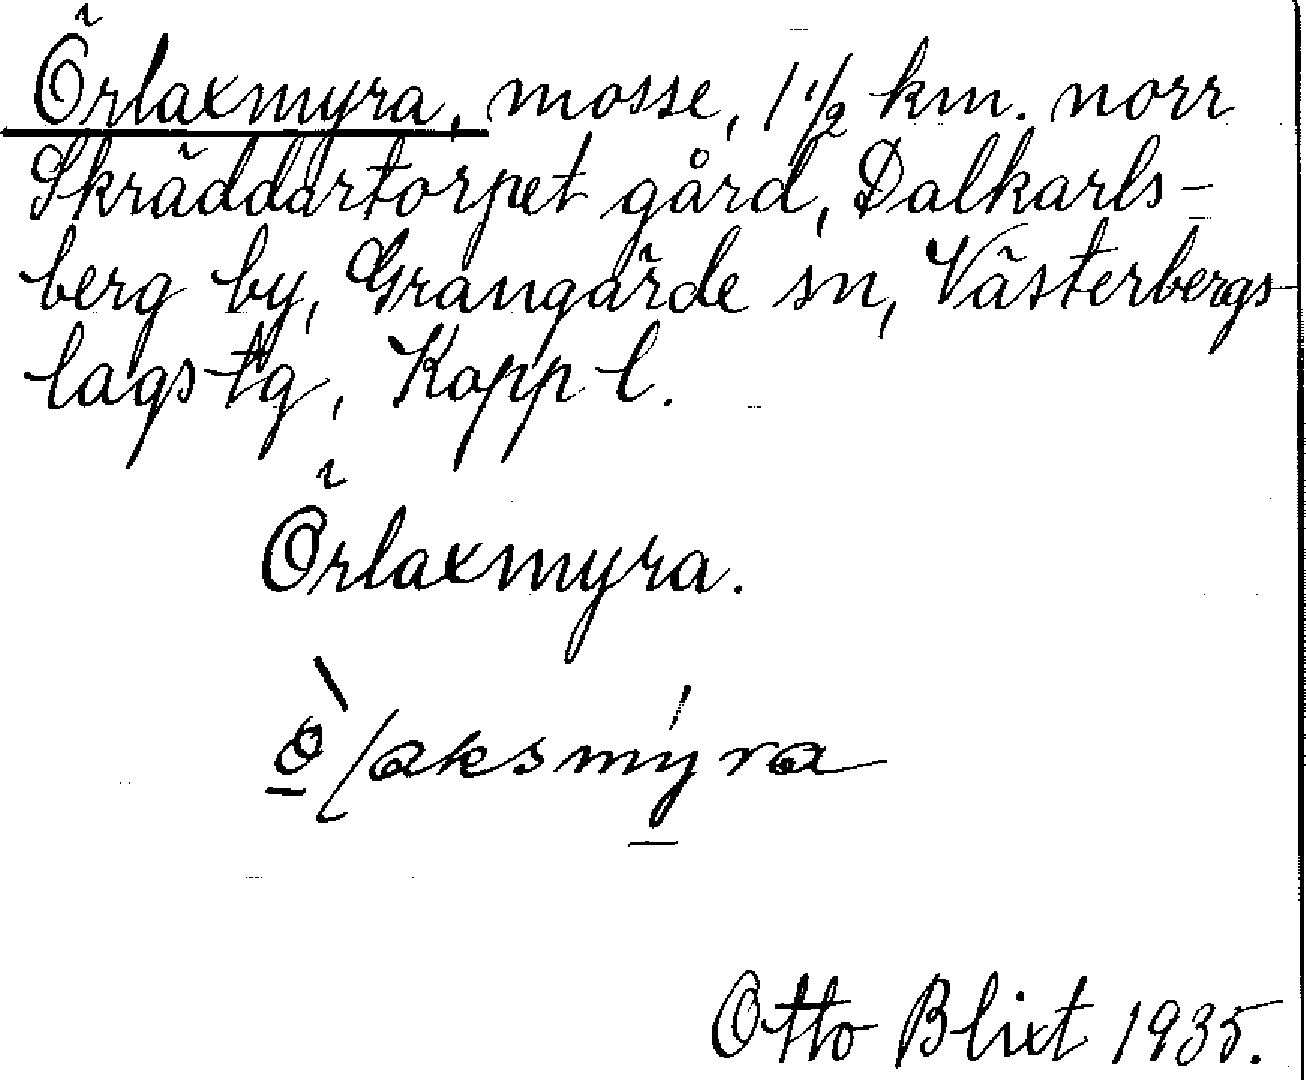 Örlaxmyra, mosse, 1 1/2 km. norr
Skräddartorpet gård, Dalkarls-
berg by, Grangärde sn, Västerbergs
lags tg, Kopp l.
Örlaxmyra.
Otto Blixt 1935.